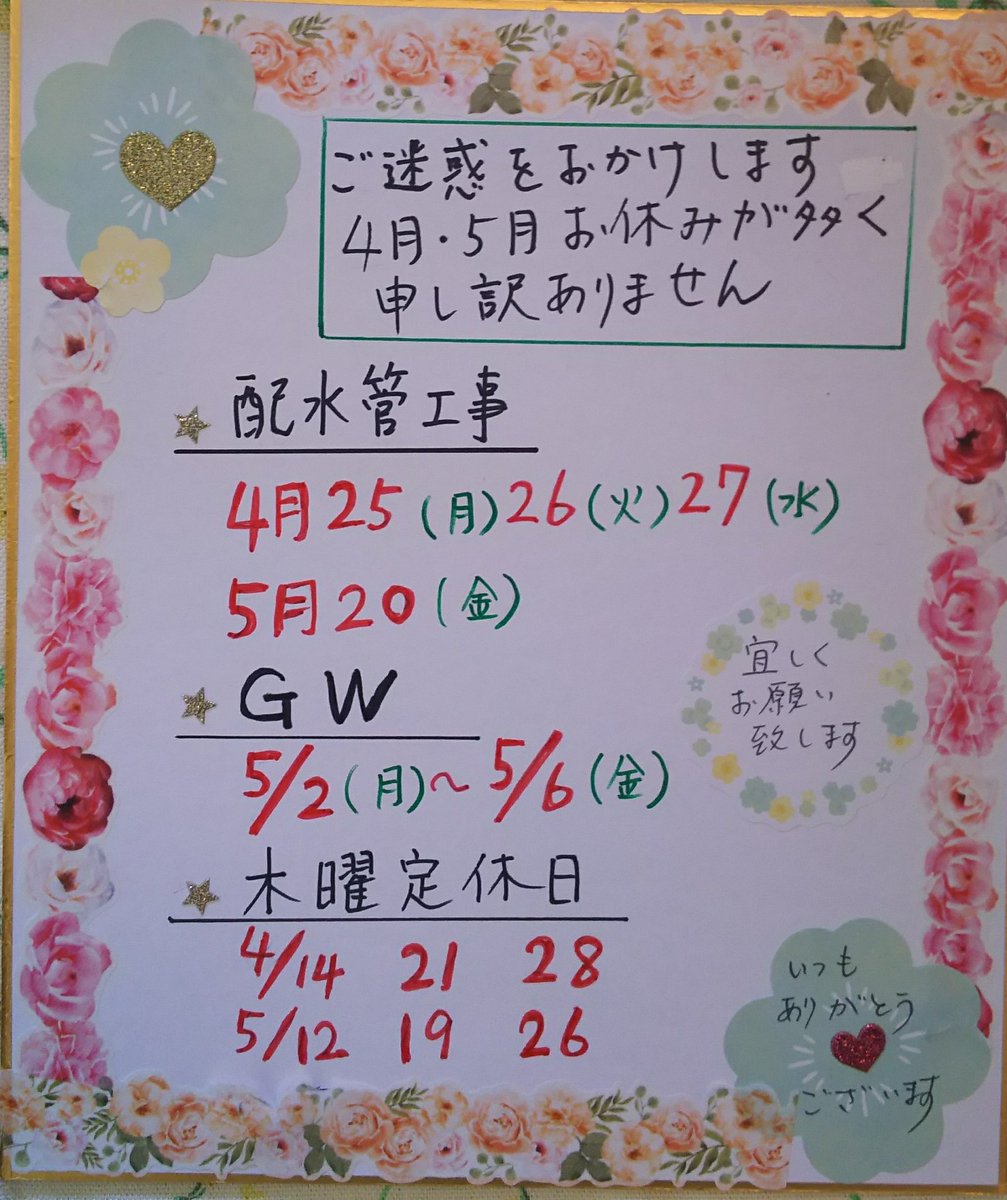 ご迷惑をおかけします
4月・5月お休みが多く
申し訳ありません
配水管工事
4月25(月)26(火)27(水)
5月20(金)
GW
5/2(月)〜5/6(金)
宜しく
お願い
致します
木曜定休日
4/14 21 28
5/12 19 26
いつも
ありがとう
ございます